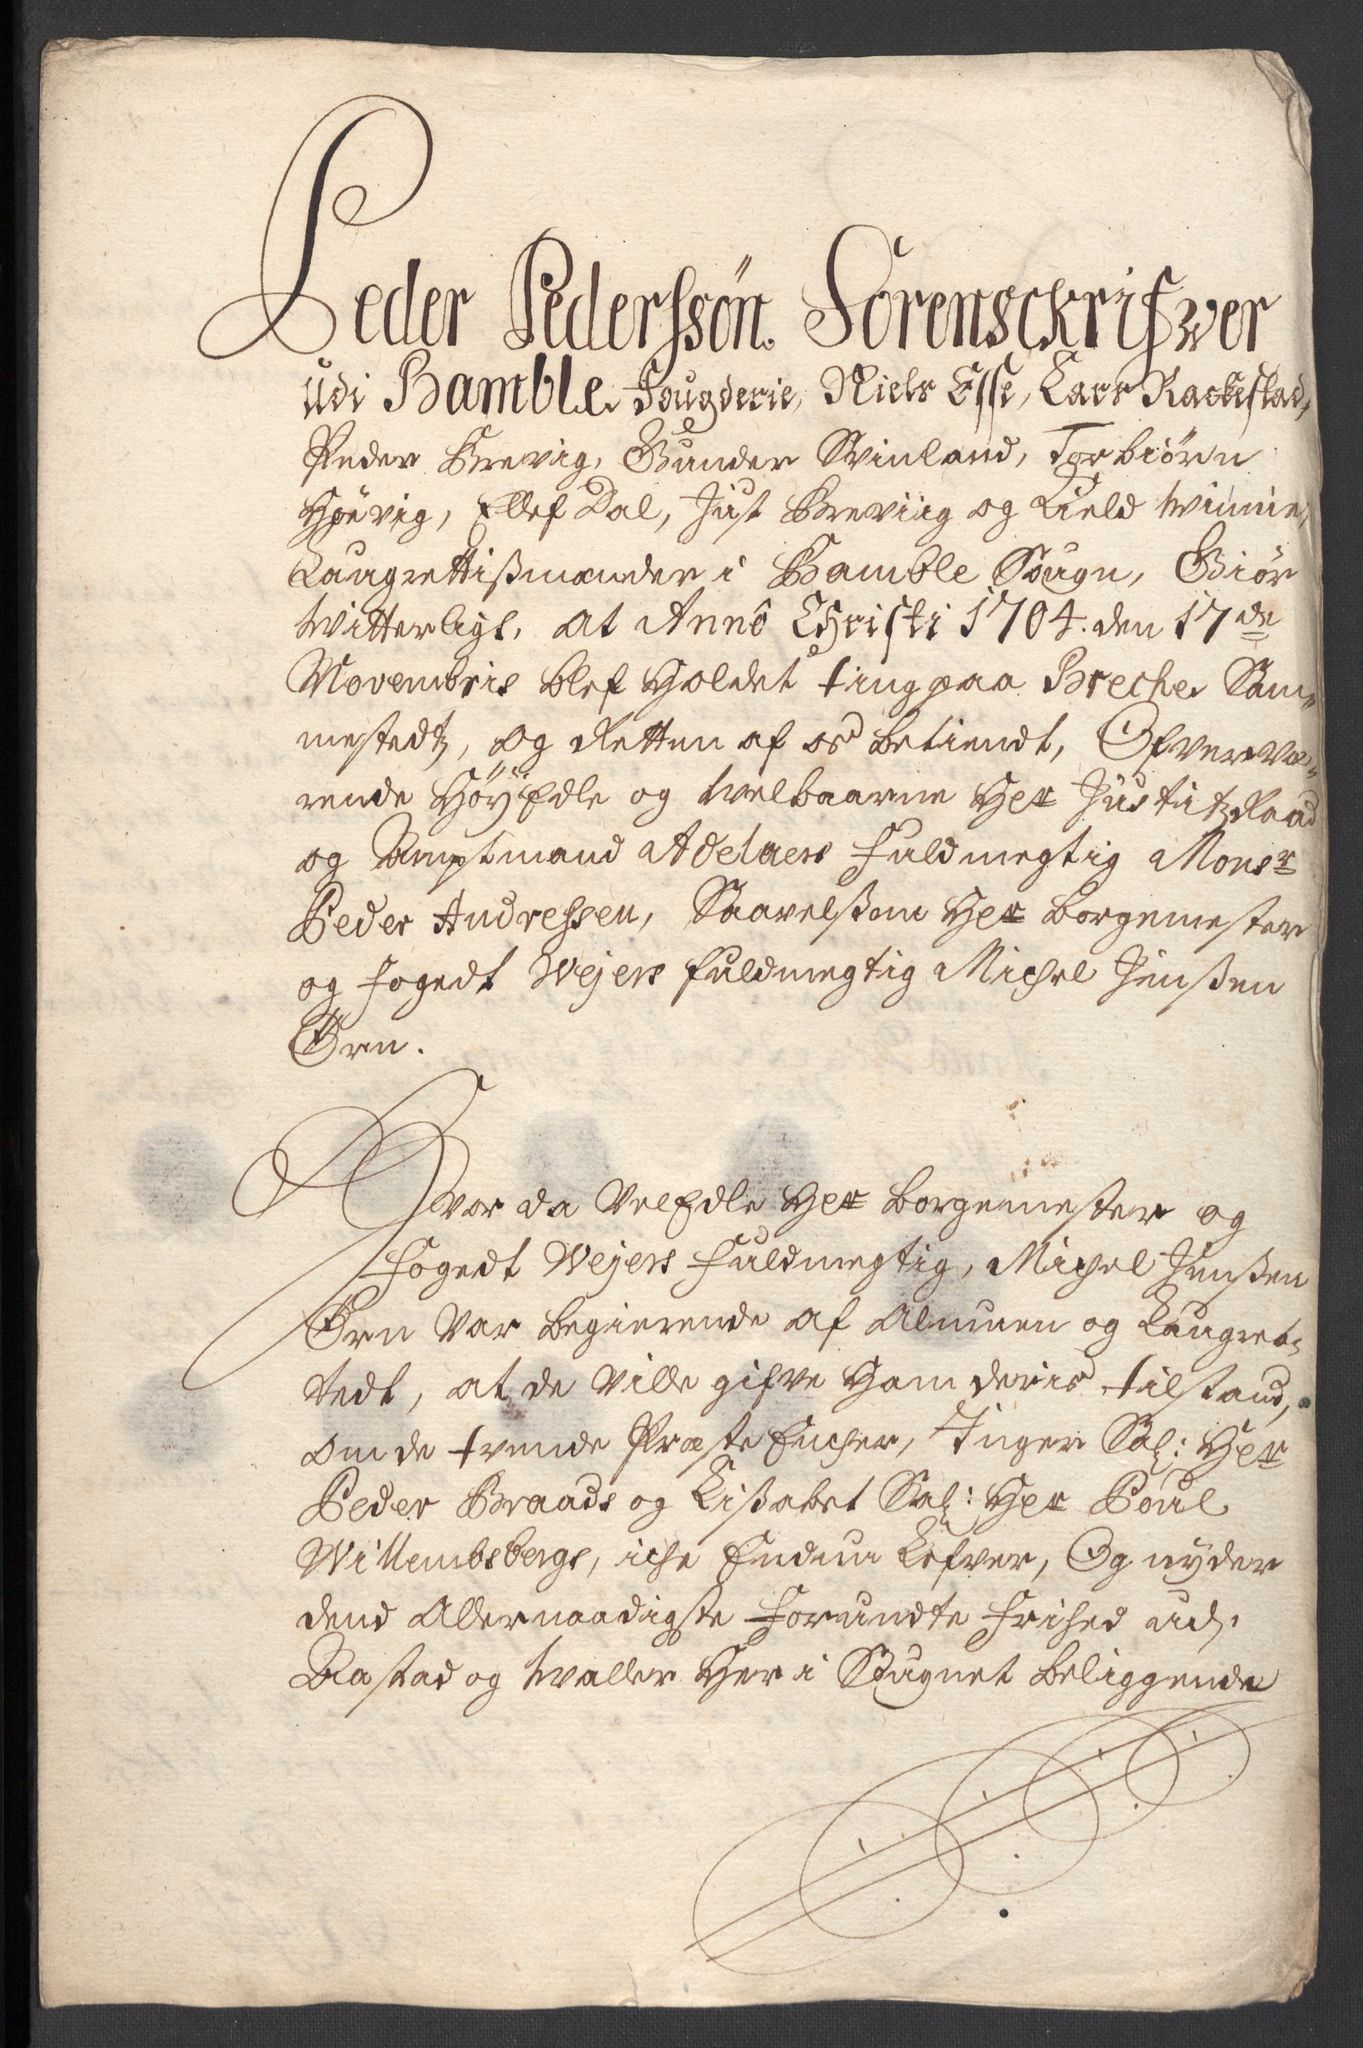 Peder Pederssøn Sorenschrifwer
Udi Bamble Fougderie, Niels Esse, Lars Rackestad,
Peder Brevig, Gunder Svinland, Torbiørn
Høevig, Ellef Dal, Just Breviig og Kield Winnie,
Laugrettißmænder i Bamble Sougn, Giør
Witterligt, at Anno Christi 1704. den 17de
Novembris blef Holdet ting paa Breche Sam-
mestedtz, og Retten af os betiendt, Ofvervæ-
rende HøyEdle og Welbaarne Her Justitz Raad
og Amptmand Adelaers Fuldmegtig Monsr
Peder Andreßen, Saavelßom Her Borgemester
og fogedt Wejers fuldmegtig Michel Jenßen
Ørn.
Hvor da VelEdle Her Borgemester og
Fogedt Wejers Fuldmegtig, Michel Jenßen
Ørn Var begierende af Almuen og Laugret-
tedt, at de Ville gifve Ham deris tilstand,
om de tvende Præste Encher, Inger Sal: Her
Peder Braads og Lißabet Sal: Her Poul
Willembsbergs, iche Endnu Lefver, Og nyder
dend Allernaadigste Forundte Frihed udj
Aastad og Waller Her i Sougnet beliggende